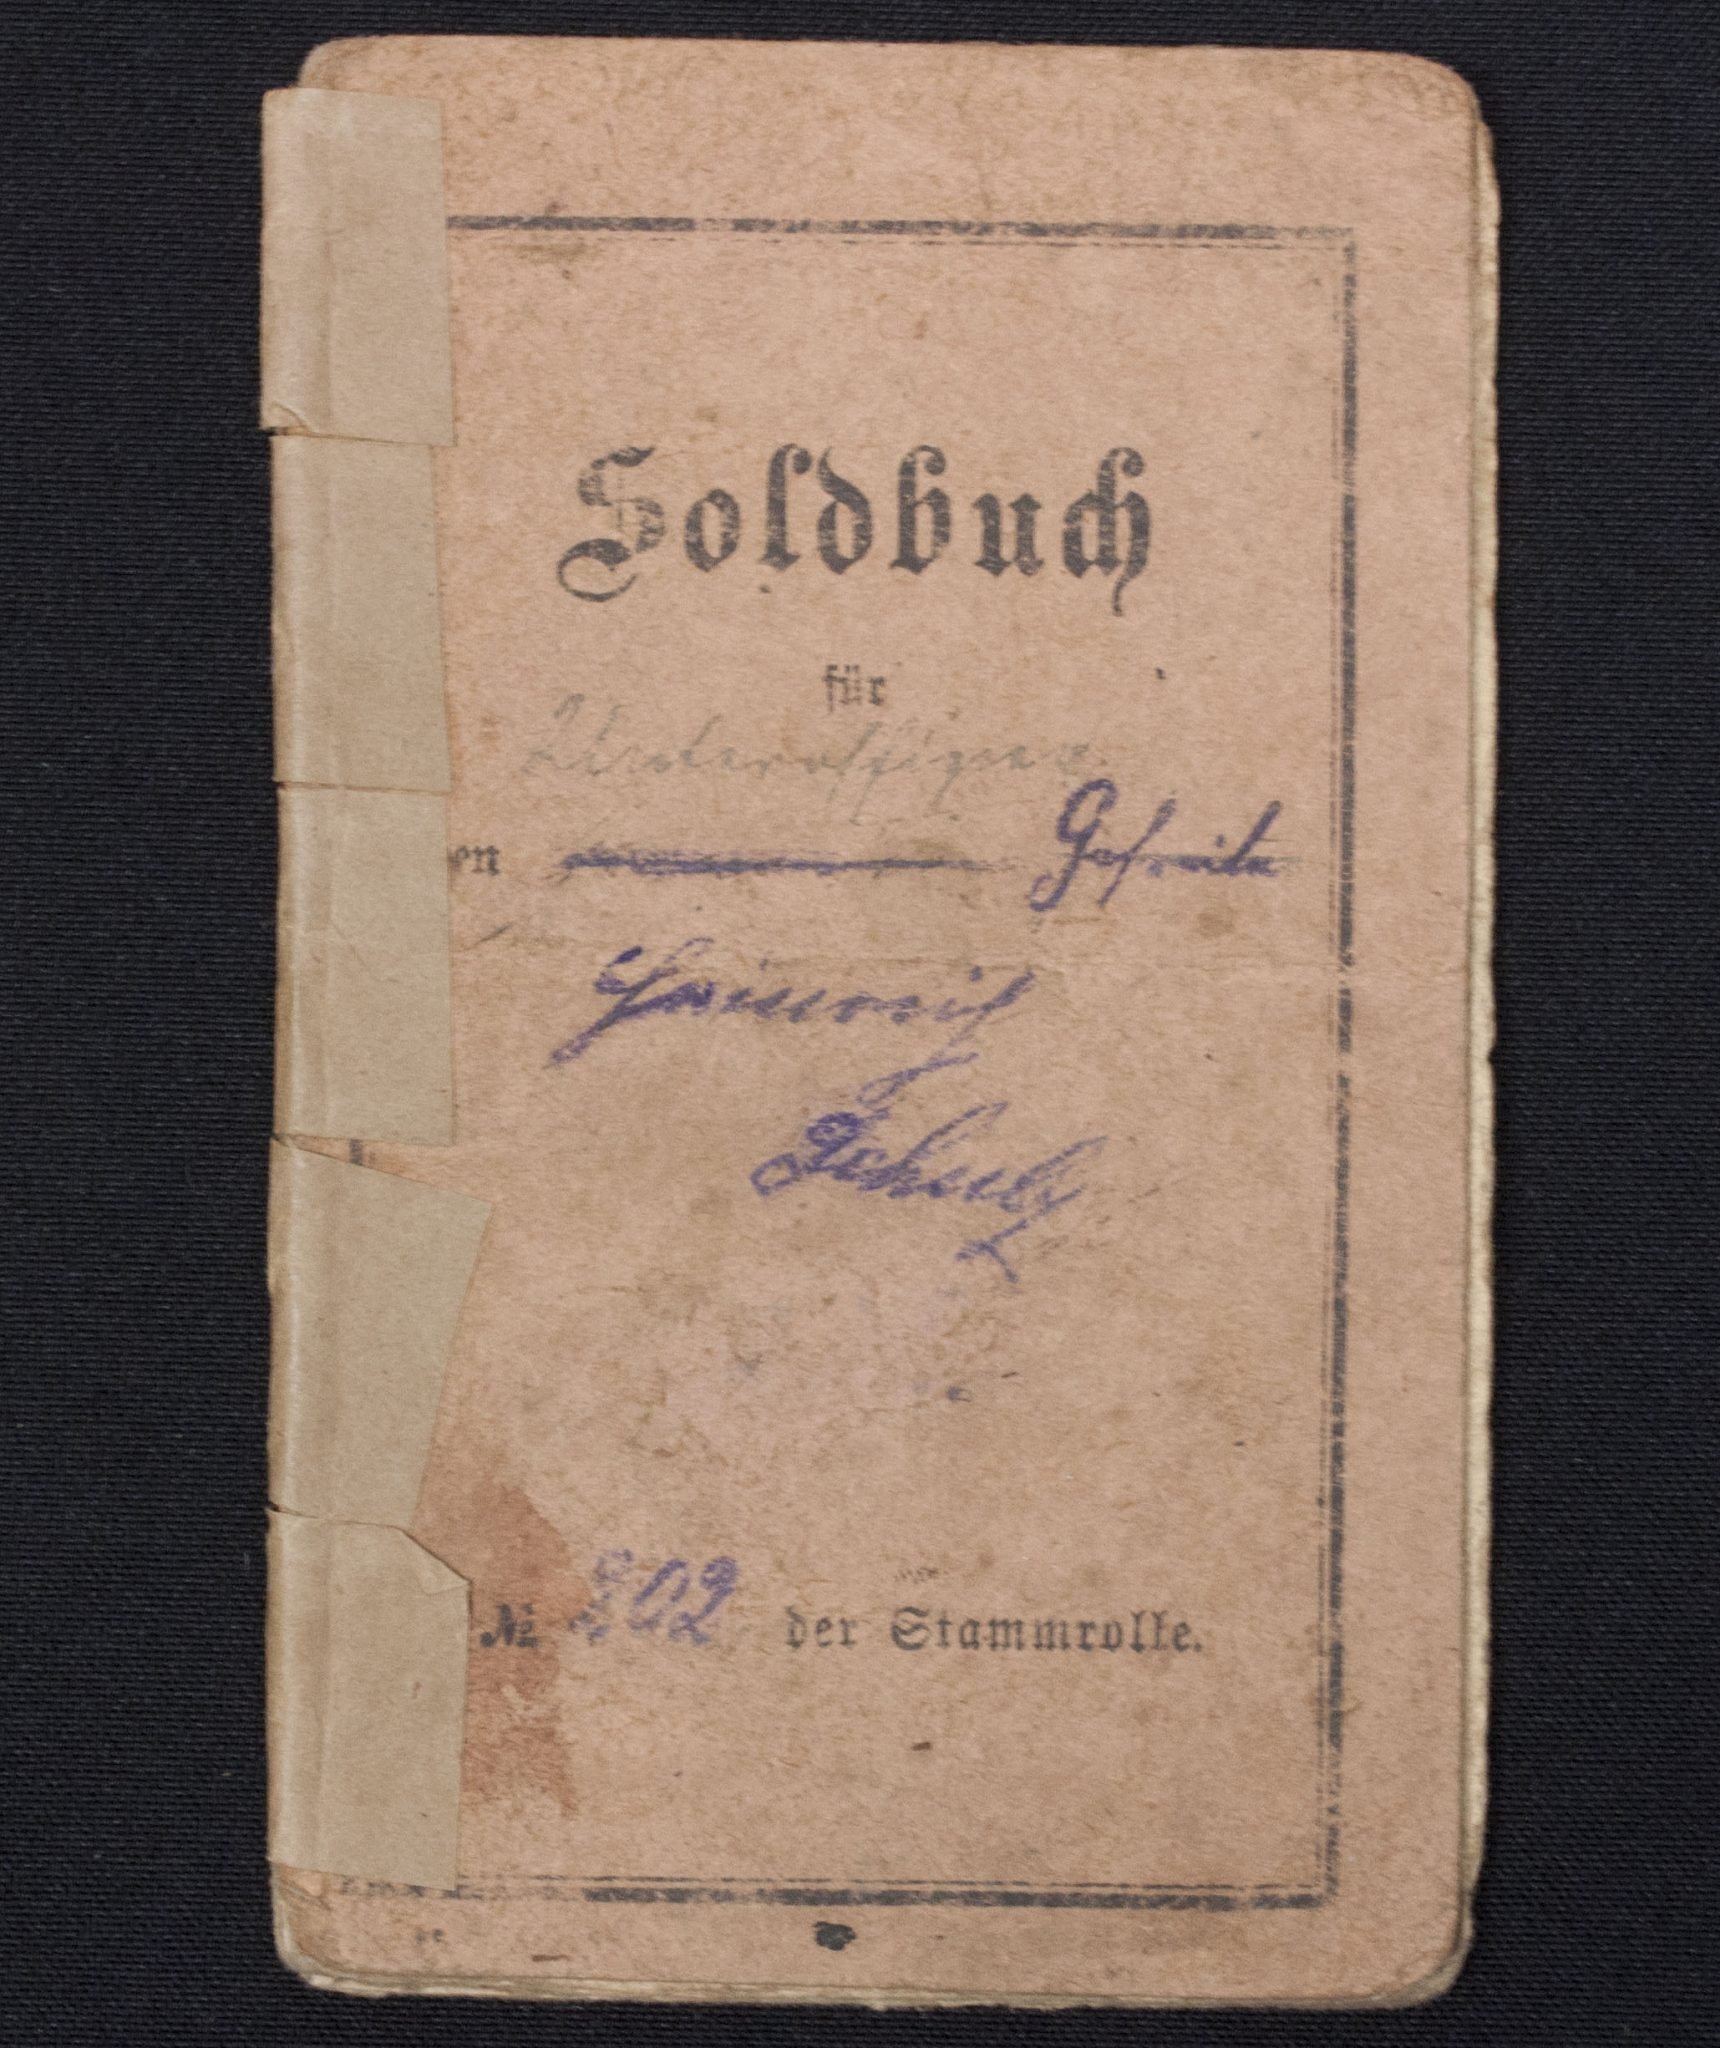 Soldbuch
für
Unteroffizier
en Gefreite
Heinrich
Schulz
№ 202 der Stammrolle.